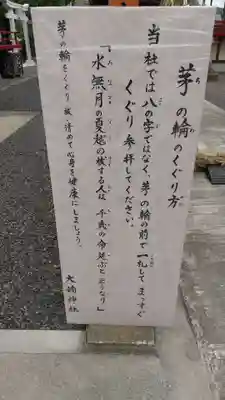 茅の輪のくぐり方
当社では八の字ではなく、茅の輪の前で一礼してまっすぐ
くぐり参拝してください。
「水無月の夏越の祓する人は 千歳の命延ぶと云うなり」
茅の輪をくぐり祓い清めて心身を健康にしましょう。
大﨑神社